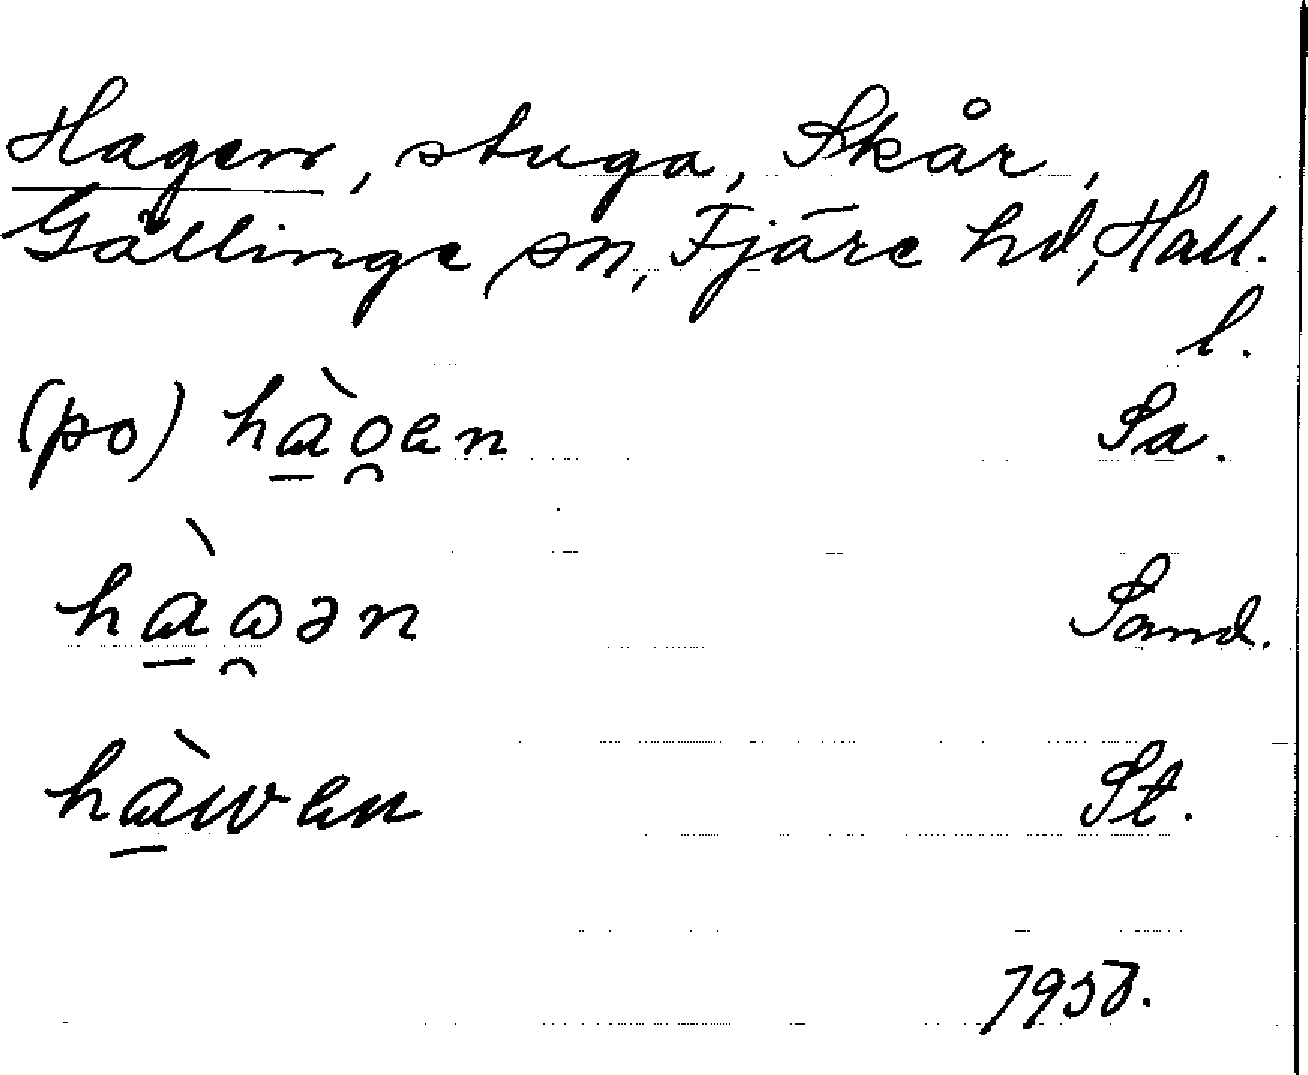 Hagen, stuga, Skår,
Gällinge sn, Fjäre hd, Hall.
l.
(po) hào̯en Sa.
hàɷ̯ən Sand.
hàwen St.
1958.